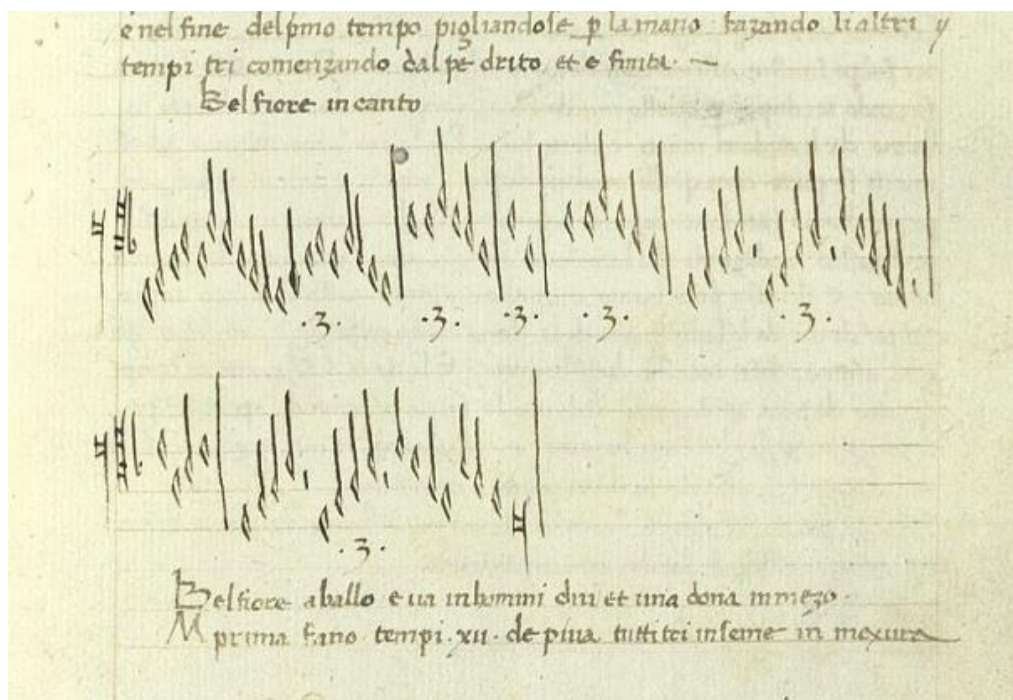 e nel fine del pmo tempo pigliandose p la mano fazando li altri y
tempi tri comenzando dal pe drito et e finita.
Belfiore in canto
.3. .3. .3. .3. .3.
.3.
Belfiore a ballo e va in homini dui et una dona in mezo.
M prima fano tempi .xii. de piva tutti tri inseme in mexura